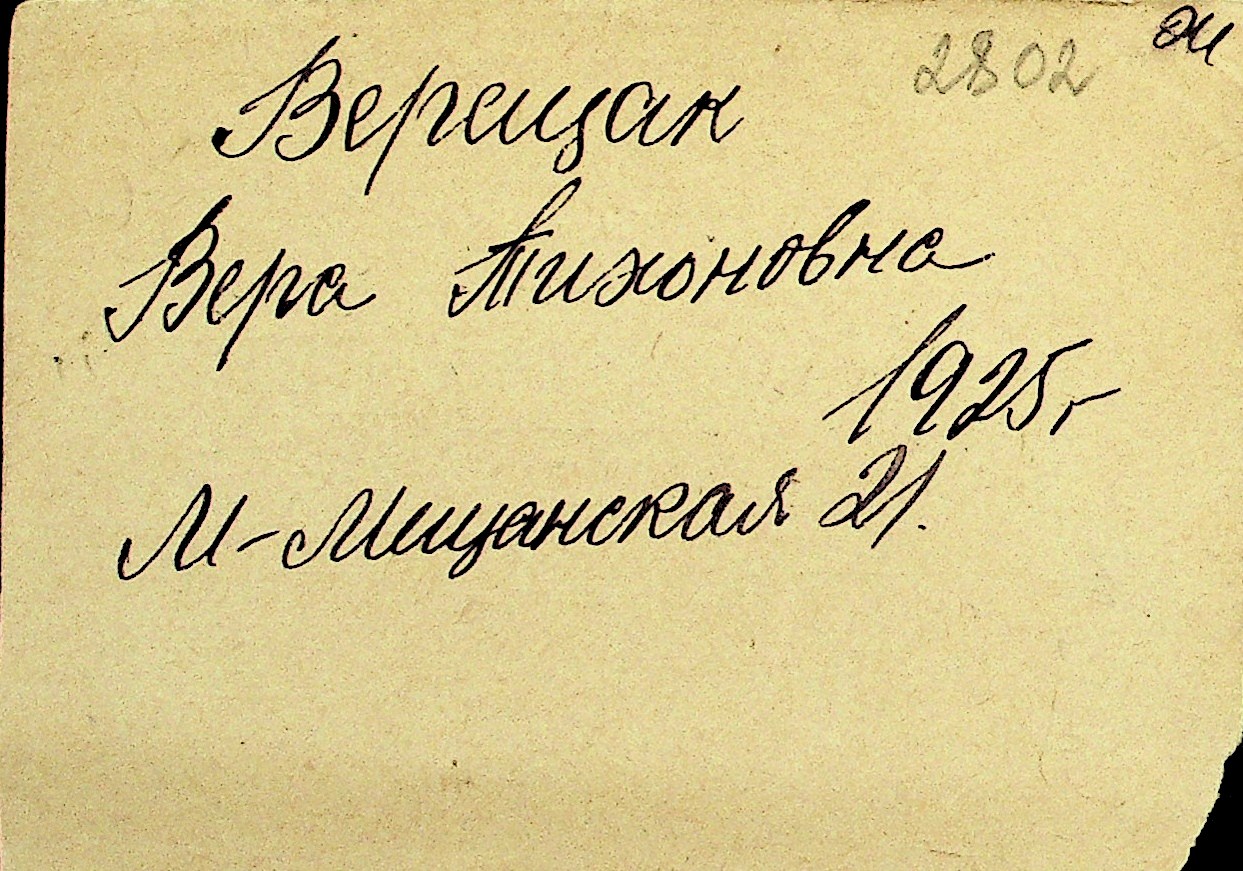 2802
Верещак
Вера Тихоновна
1925г
М-Мищанская 21.